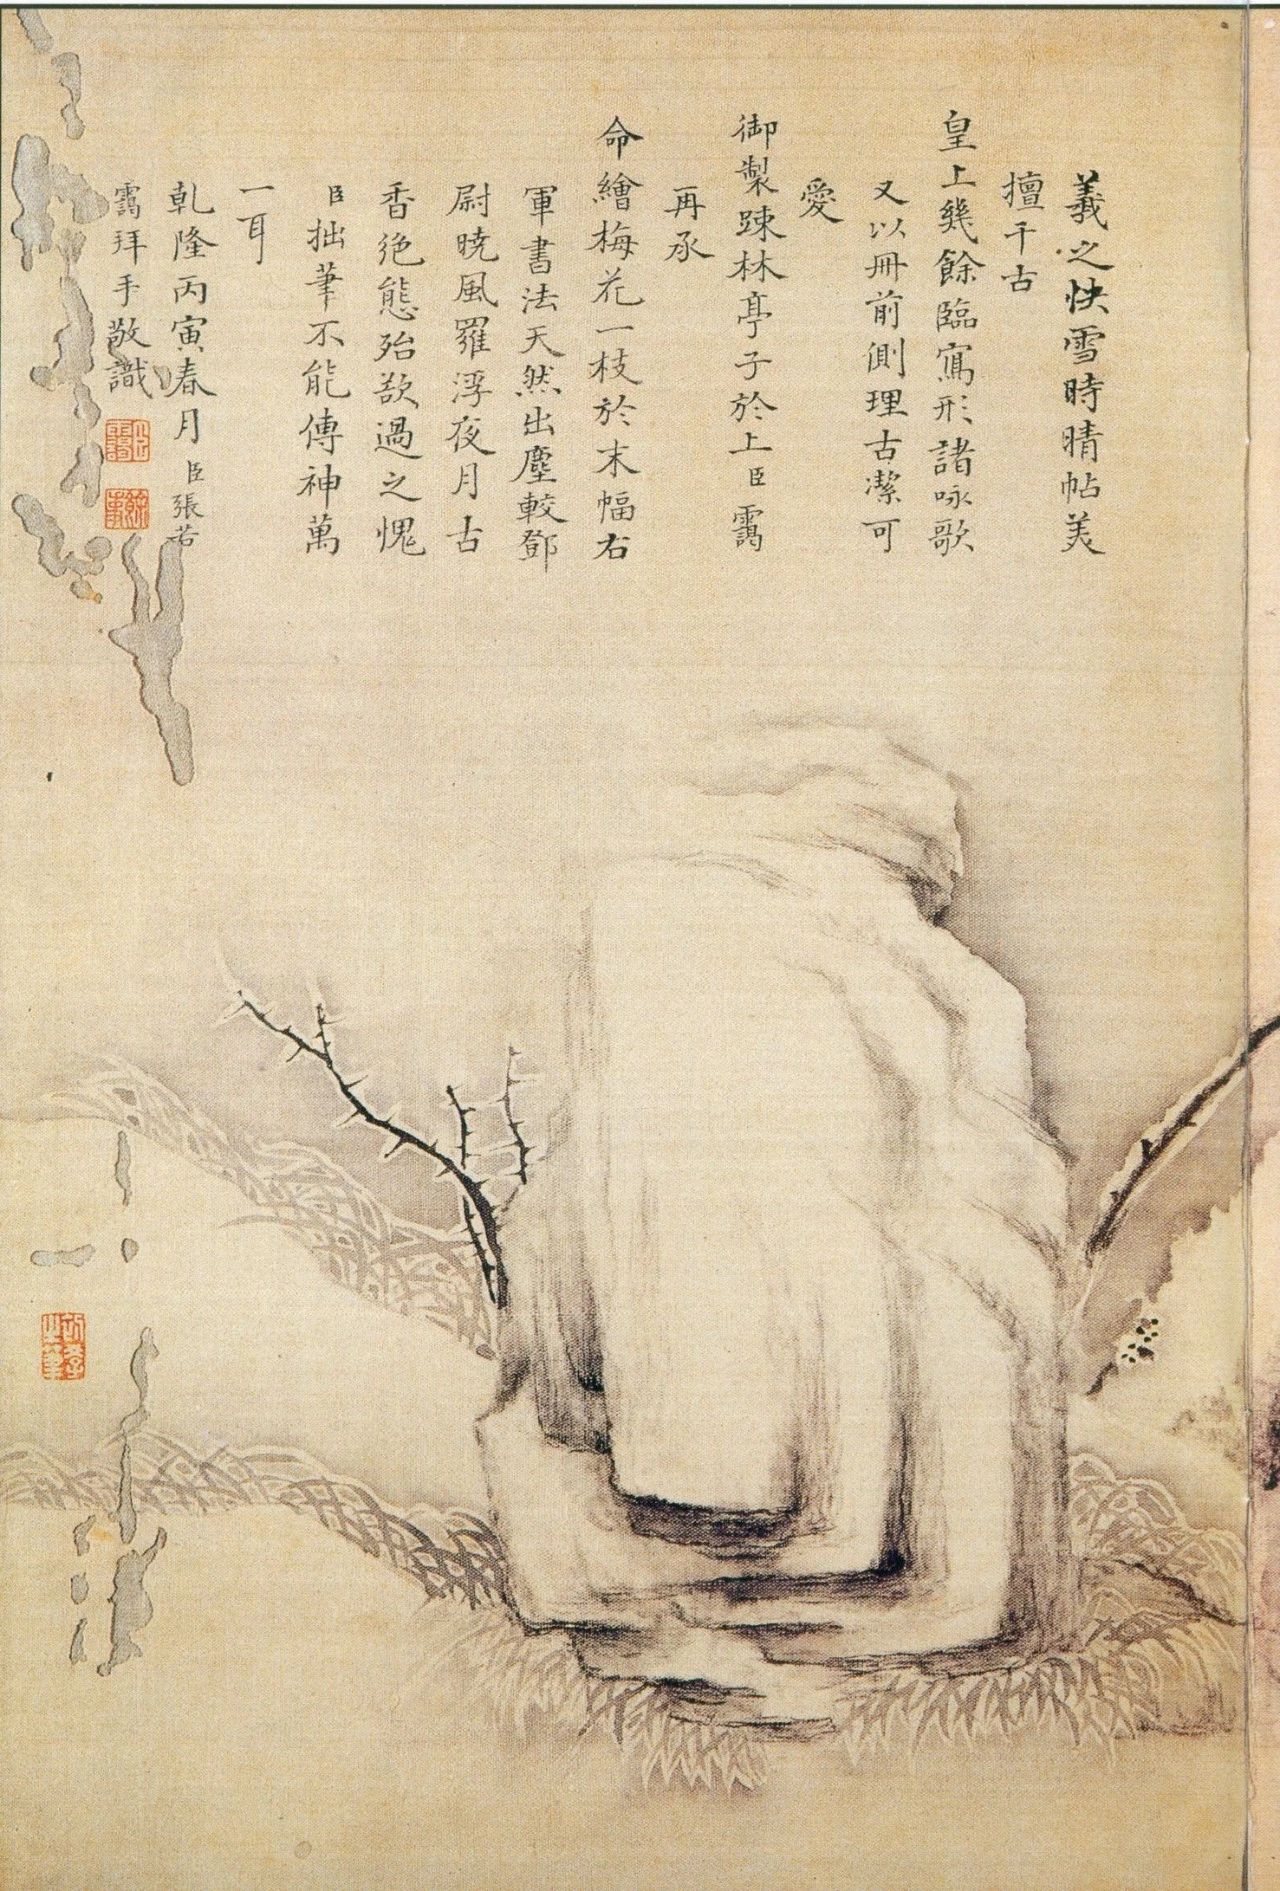 羲之快雪時晴帖美
擅千古
皇上幾餘臨寫形諸咏歌
又以冊前側理古潔可
愛
御製踈林亭子於上臣靄
再承
命繪梅花一枝於末幅右
軍書法天然出塵較鄧
尉曉風羅浮夜月古
香絶態殆欲過之愧
臣拙筆不能傳神萬
一耳
乾隆丙寅春月臣張若
靄拜手敬識